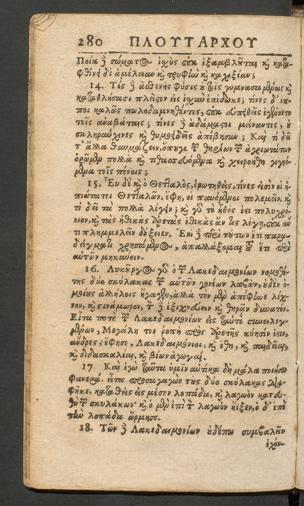 280 ΠΛΟΥΤΑΡΧΟΥ
Ποία δὲ σώματος ἰσχὺς οὐκ ἐξαμβλῦται καὶ κατα-
φθίνει δι' ἀμέλειαν καὶ τρυφὴν καὶ καχεξίαν;
14. Τίς δὲ ἀσθενὴς φύσις οὐ τοῖς γυμνασαμένοις καὶ
καταθλήσασι πλεῖστον εἰς ἰσχὺν ἐπέδωκε; τίνες δ' ἵπ-
ποι καλῶς πωλοδαμνηθέντες, οὐκ εὐπειθεῖς ἐγένοντο
τοῖς ἀναβάταις; τίνες δὲ ἀδάμαστοι μείναντες, οὐ
σκληραύχενες καὶ θυμοειδεῖς ἀπέβησαν; Καὶ τί δεῖ
τὰ ἄλλα θαυμάζειν, ὅπου γε τῶν θηρίων τῶν ἀγριωτάτων
ὁρῶμεν πολλὰ καὶ τιθασσευόμενα καὶ χειροήθη γιγνό-
μενα τοῖς πόνοις;
15. Εὖ δὲ καὶ ὁ Θετταλὸς, ἐρωτηθεὶς, τίνες εἰσὶν οἱ
ἠπιώτατοι Θετταλῶν, ἔφη, οἱ παυόμενοι πολεμεῖν. καὶ
τί δεῖ τὰ πολλὰ λέγειν; καὶ γὰρ τὸ ἦθος ἐστι πολυχρό-
νιον, καὶ τὰς ἠθικὰς ἀρετὰς ἐθικὰς ἄν τις λέγῃ, οὐκ ἄν
τι πλημμελεῖν δόξειεν. Ἑνὶ δὲ περὶ τούτων ἔτι παρα-
δείγματι χρησάμενος, ἀπαλλάξομαι τοῦ ἔτι περὶ
αὐτῶν μηκύνειν.
16. Λυκοῦργος γὰρ ὁ τῶν Λακεδαιμονίων νομοθέ-
της δύο σκύλακας τῶν αὐτῶν γονέων λαβὼν, οὐδὲν ὁ-
μοίως ἀλλήλοις ἤγαγεν, ἀλλὰ τὸν μὲν ἀπέφηνε λίχ-
νον, καὶ σινάμωρον, τὸν δὲ ἐξιχνεύειν καὶ θηρᾶν δυνατόν.
Εἶτα ποτὲ τῶν Λακεδαιμονίων εἰς ταυτὸ συνειλεγ-
μένων, Μεγάλη τοι ῥοπὴ πρὸς ἀρετῆς κτῆσίν ἐστιν,
ἄνδρες, ἔφησε, Λακεδαιμόνιοι, καὶ ἔθη, καὶ παιδεῖαι,
καὶ διδασκαλίαι, καὶ βίων ἀγωγαί.
17. Καὶ ἐγὼ ταῦτα ὑμῖν αὐτίκα δὴ μάλα ποιήσω
φανερά. εἶτα προσαγαγὼν τοὺς δύο σκύλακας διαφῆκε,
φῆκε, καταθεὶς εἰς μέσον λοπάδα, καὶ λαγωὸν κατευ-
θὺ τῶν σκυλάκων· καὶ ὁ μὲν ἐπὶ τὸν λαγωὸν ᾖξεν, ὁ δ' ἐπὶ
τὴν λοπάδα ὥρμησε.
18. Τῶν δὲ Λακεδαιμονίων οὐδέπω συμβαλεῖν
ἐχόν-